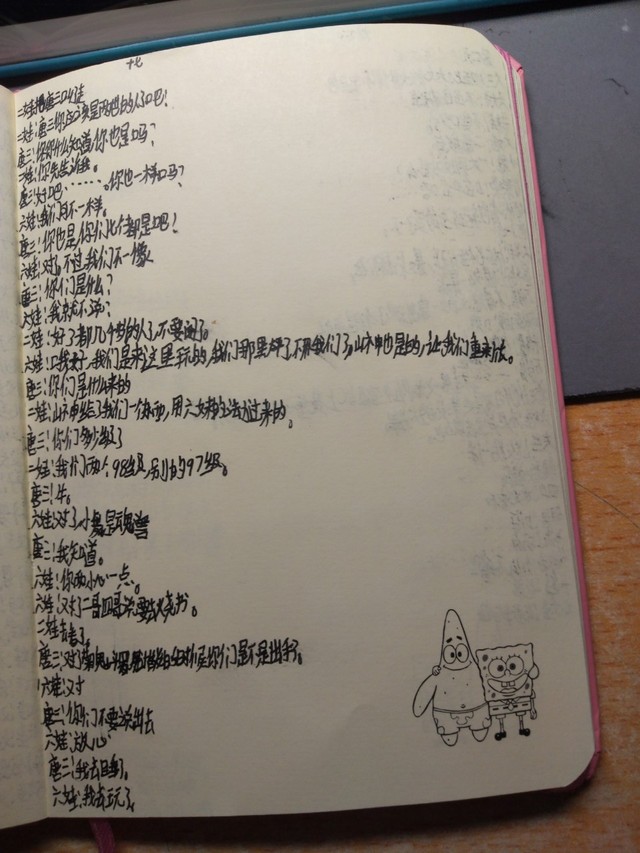 十七
二娃把唐三叫住
二娃：唐三你应实是两世的人吧！
唐三：你什么知道，你也是吗？
二娃：你先告诉我。
唐三：好吧……。你也一样吗？
六娃：我们不一样。
唐三：你也是，你们七个都是吧！
六娃：对。不过我们不一像
唐三：你们是什么？
六娃：我就不说？
二娃：好了都几个岁的人了，不要闹了。
六娃：，我们是来这里玩的，我们那里了不我们了，山神也是的，让我们重来次。
唐三：你们是什么来的
二娃：山神给了我们一，用六娃的法过来的。
唐三：你们多少级了
二娃：我们两个98级，别的97级。
唐三：牛。
六娃：对了，小舞是魂兽
唐三：我知道。
六娃：你两小心一点。
六娃：对了二哥四哥说要去火烧书。
二娃去了。
唐三：对了你们是不是出手了。
六娃：对
唐三：你们不要说出去
六娃：放心
唐三：我去睡了。
六娃：我去玩了